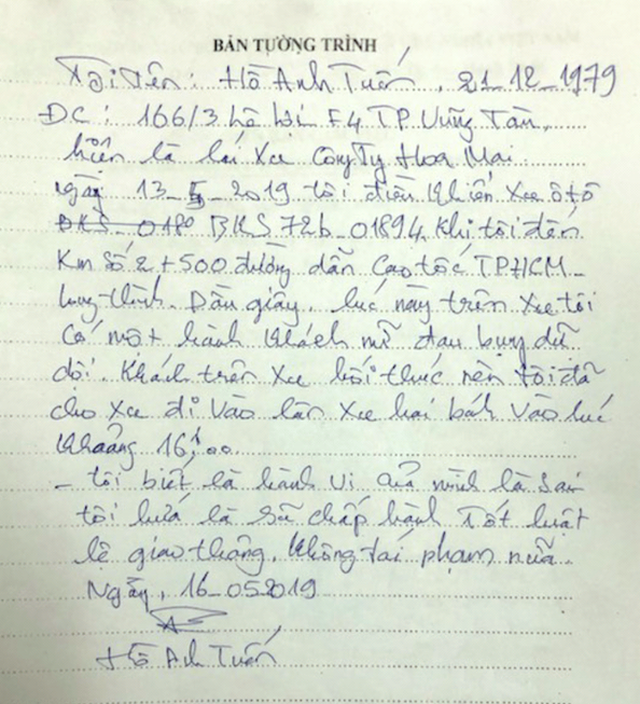 BẢN TƯỜNG TRÌNH
Tôi tên: Hồ Anh Tuấn, 21-12-1979
ĐC: 166/3 Lê Lợi F4 TP Vũng Tàu.
hiện là lái xe Công Ty Hoa Mai
ngày 13-5-2019 tôi điều khiển xe ôtô
BKS 0180 BKS 72b-01894. Khi tôi đến
Km số 2+500 đường dẫn Cao tốc TPHCM-
Long thành. Dầu giây. lúc này trên xe tôi
Có một hành khách nữ đau bụng dữ
dội. Khách trên xe hối thúc nên tôi đã
cho xe đi vào làn xe hai bánh vào lúc
khoảng 16h00
- tôi biết là hành vi của mình là sai
tôi hứa là sẽ chấp hành Tốt luật
lệ giao thông. Không tái phạm nữa.
Ngày, 16-05-2019
Hồ Anh Tuấn